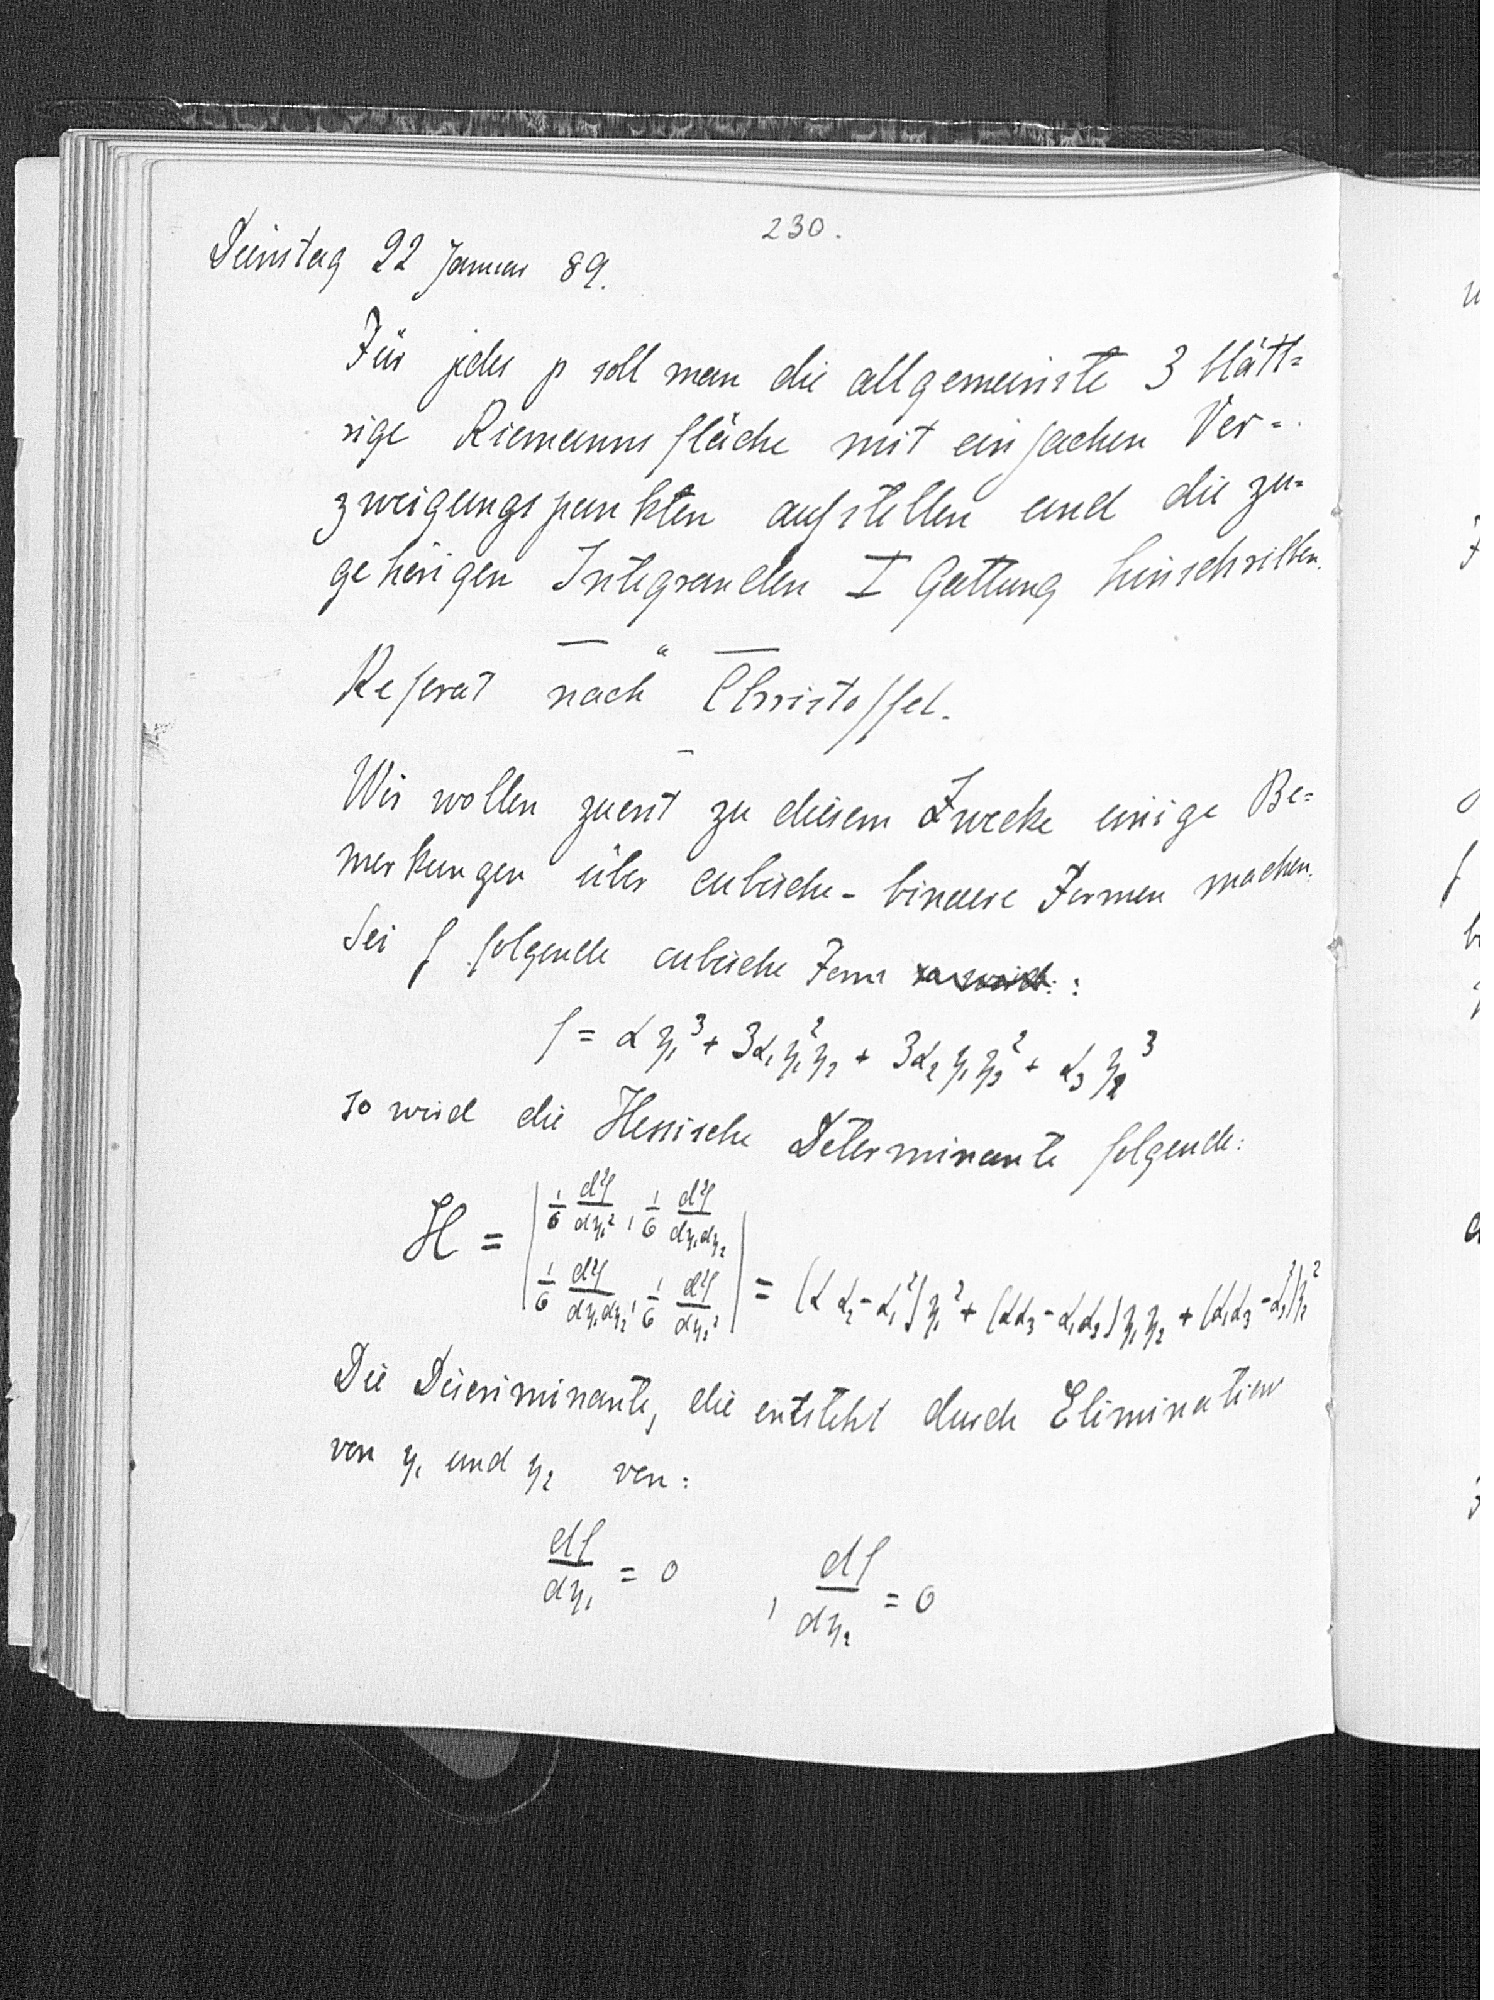 230.
Dienstag 22 Januar 89.
Für jedes p soll man die allgemeinste 3 blätt=
rige Riemannsfläche mit einfachen Ver=
zweigungspunkten aufstellen und die zu=
gehörigen Integranden I Gattung hinschreiben.
Referat nach Christoffel.
Wir wollen zuerst zu diesem Zwecke einige Be=
merkungen über cubische-binaere Formen machen.
Sei f folgende cubische Form :
f = α η₁³ + 3α₁η₁²η₂ + 3α₂η₁η₂² + α₃η₂³
so wird die Hessische Determinante folgende:
H = | 1/6 d²f/dη₁², 1/6 d²f/dη₁dη₂ |
| 1/6 d²f/dη₁dη₂, 1/6 d²f/dη₂² | = (αα₂-α₁²)η₁² + (αα₃-α₁α₂)η₁η₂ + (α₁α₃-α₂²)η₂²
Die Discriminante, die entsteht durch Elimination
von η₁ und η₂ von:
df/dη₁ = 0 , df/dη₂ = 0